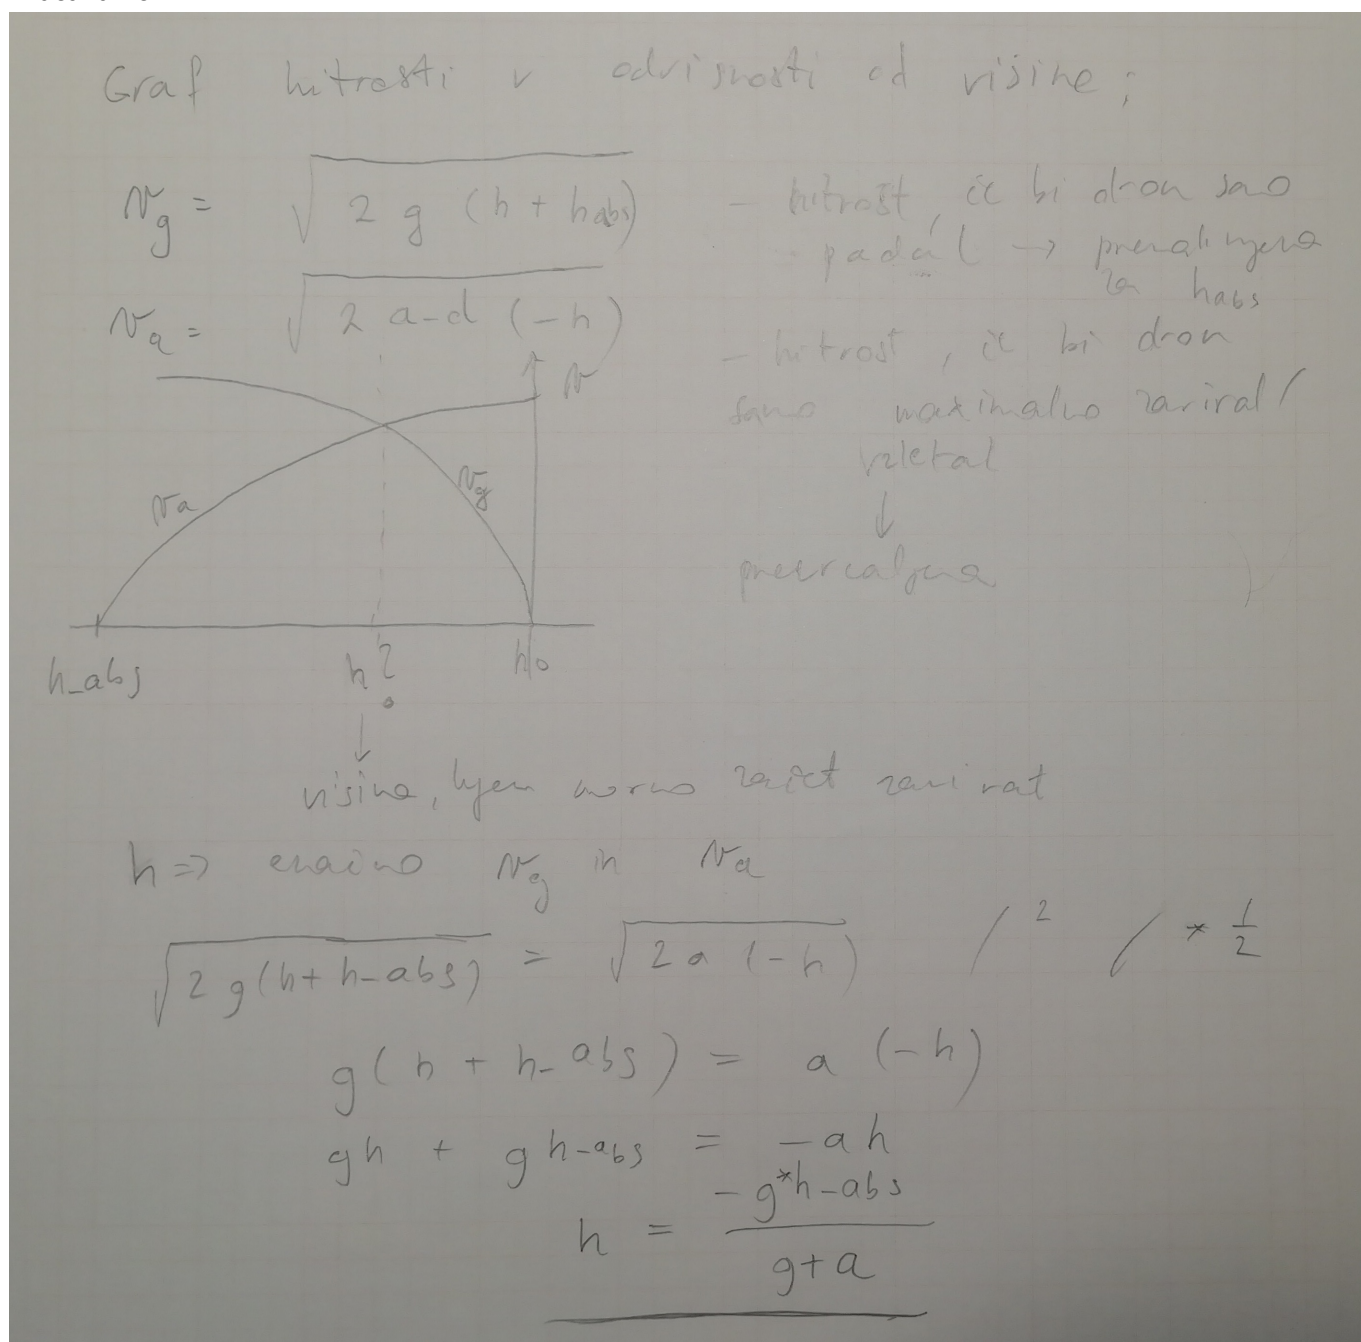 Graf hitrosti v odvisnosti od višine;
v_g = √(2 g (h + habs)) - hitrost, če bi dron samo
padal → premaknjena
za habs
v_a = √(2 a-d (-h)) - hitrost, če bi dron
samo maximalno zaviral /
vzletal
↓
preercaljena
v
v_a
v_g
h_abs h? h0
↓
višina, kjer mormo začet zavirat
h => enačimo v_g in v_a
√(2 g(h + h-abs)) = √(2 a (-h)) /² / * 1/2
g(h + h-abs) = a (-h)
gh + gh-abs = -ah
h = (-g*h-abs)/(g+a)